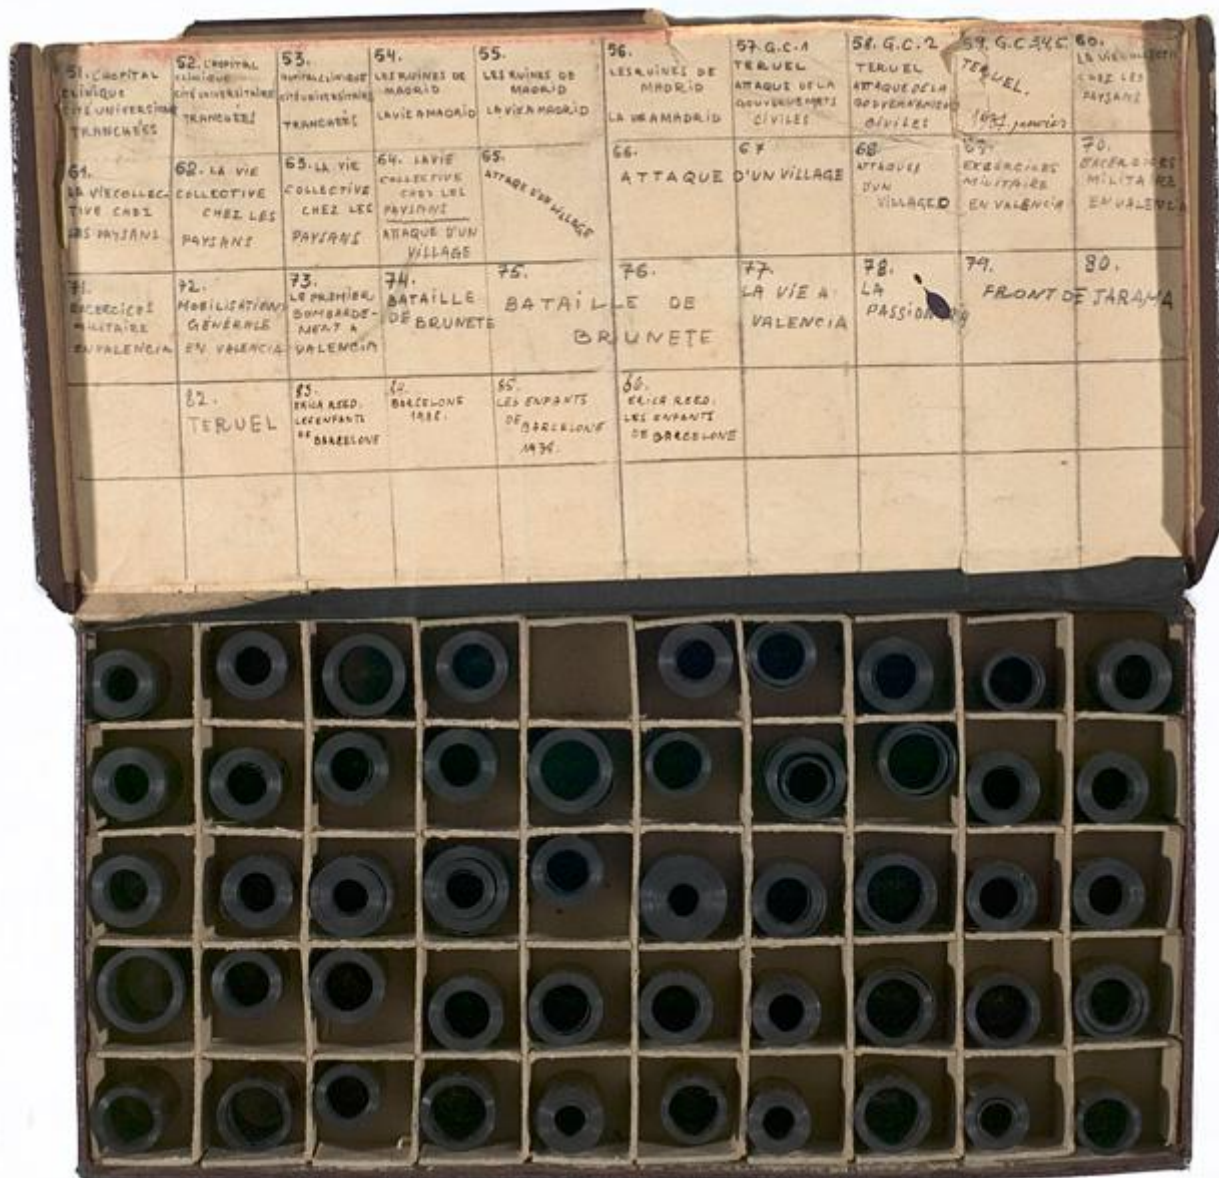 51. L'HOPITAL
CLINIQUE
CITÉ UNIVERSITAIRE
TRANCHÉES
52. L'HOPITAL
CLINIQUE
CITÉ UNIVERSITAIRE
TRANCHÉES
53.
HOPITAL CLINIQUE
CITÉ UNIVERSITAIRE
TRANCHÉES
54.
LES RUINES DE
MADRID
LA VIE A MADRID
55.
LES RUINES DE
MADRID
LA VIE A MADRID
56.
LES RUINES DE
MADRID
LA VIE A MADRID
57. G.C.1
TERUEL
ATTAQUE DE LA
CIVILES
58. G.C.2
TERUEL
ATTAQUE DE LA
CIVILES
59. G.C 3,4,5
TERUEL.
janvier
60.
LA VIE COLLECTIVE
CHEZ LES
PAYSANS
61.
LA VIE COLLEC-
TIVE CHEZ
LES PAYSANS
62. LA VIE
COLLECTIVE
CHEZ LES
PAYSANS
63. LA VIE
COLLECTIVE
CHEZ LES
PAYSANS
64. LA VIE
COLLECTIVE
CHEZ LES
PAYSANS
ATTAQUE D'UN
VILLAGE
65.
ATTAQUE D'UN VILLAGE
66. 67
ATTAQUE D'UN VILLAGE
68
ATTAQUES
D'UN
VILLAGE
69.
EXERCICES
MILITAIRE
EN VALENCIA
70.
EXERCICES
MILITAIRE
EN VALENCIA
71.
EXERCICES
MILITAIRE
EN VALENCIA
72.
MOBILISATION
GÉNÉRALE
EN VALENCIA
73.
LE PREMIER
BOMBARDE-
MENT A
VALENCIA
74.
BATAILLE
DE BRUNETE
75. 76.
BATAILLE DE
BRUNETE
77.
LA VIE A
VALENCIA
78.
LA
79. 80.
FRONT DE JARAMA
82.
TERUEL
83.
ERICA REED.
LES ENFANTS
DE BARCELONE
84.
BARCELONE
85.
LES ENFANTS
DE BARCELONE
86.
ERICA REED.
LES ENFANTS
DE BARCELONE